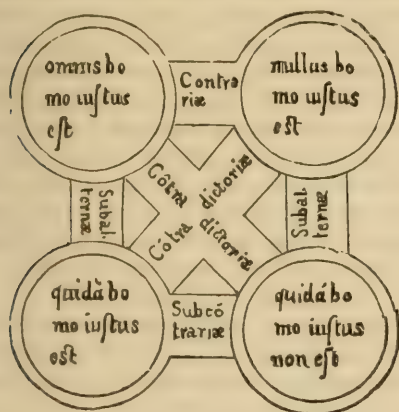 omnis ho
mo iustus
est
Contra
riæ
nullus ho
mo iustus
est
Subal
ternæ
Cōtra dictoriæ
Cōtra dictoriæ
Subal
ternæ
quidā ho
mo iustus
est
Subcō
trariæ
quidā ho
mo iustus
non est